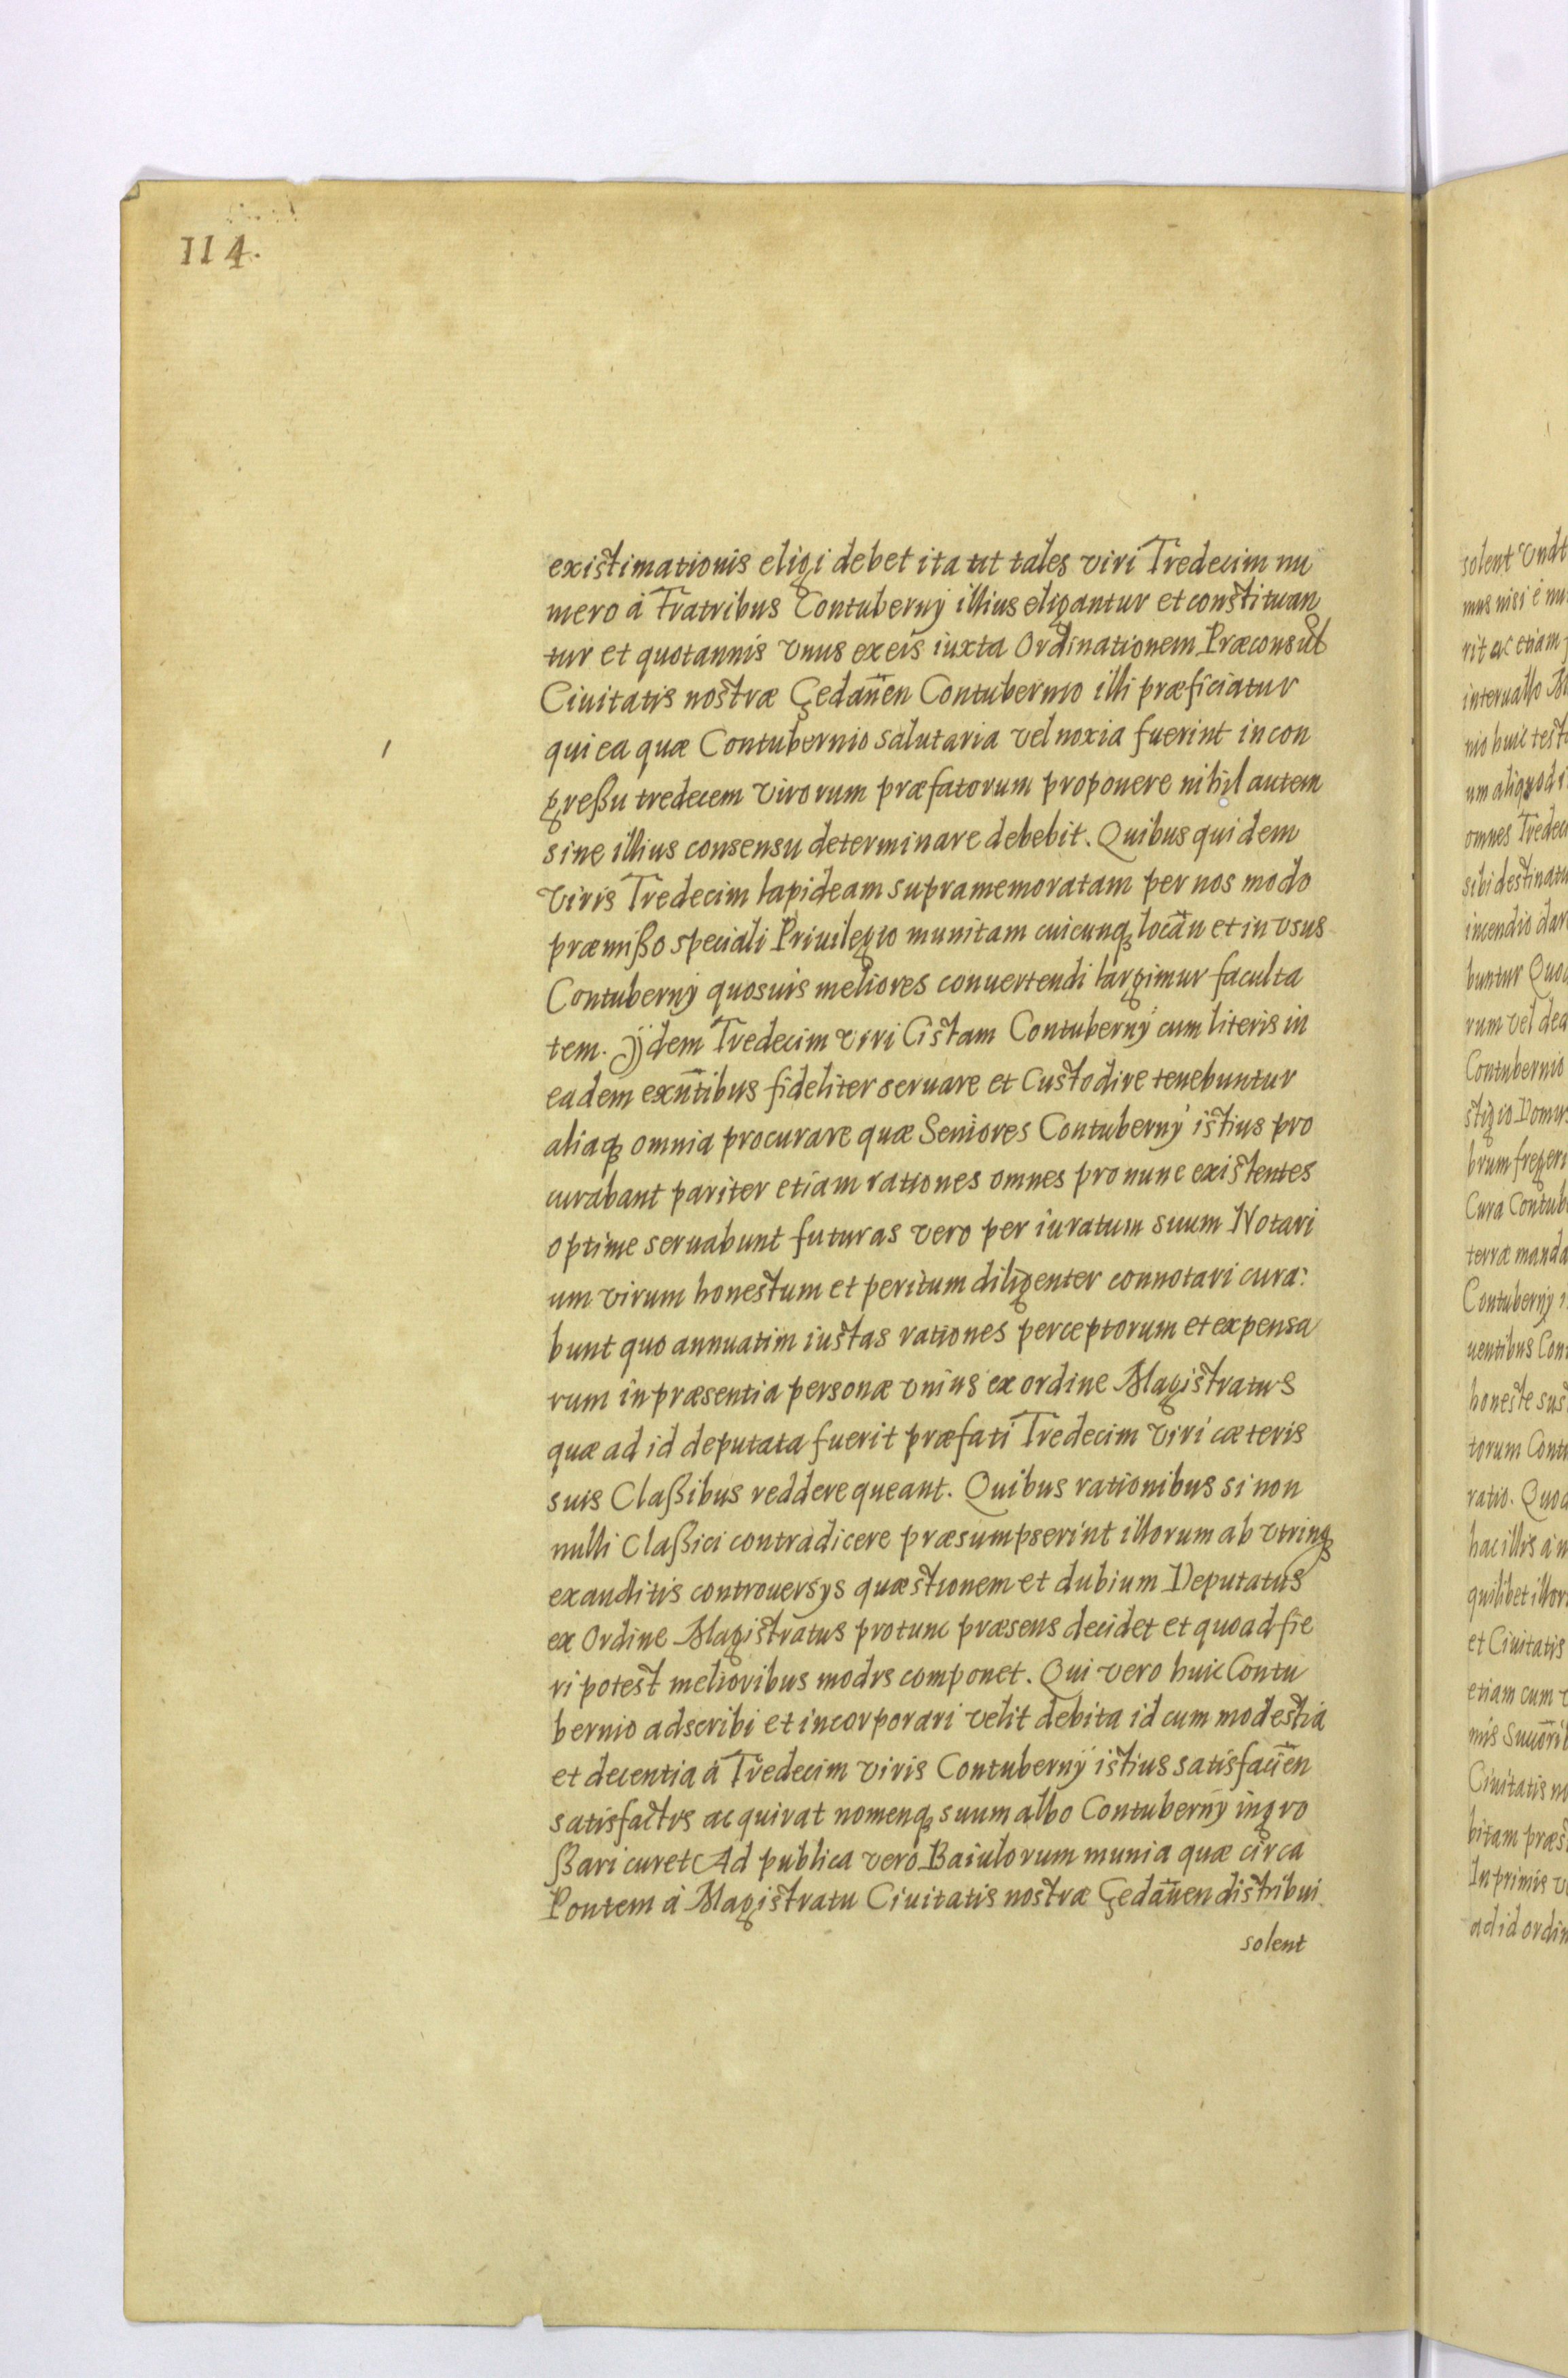 114.
existimationis eligi debet ita ut tales viri Tredecim nu
mero à Fratribus Contubernÿ illius eligantur et constituan
tur et quotannis vnus ex eis iuxta Ordinationem Præconsul
Ciuitatis nostræ Gedan̄en Contubernio illi præficiatur
qui ea quæ Contubernio salutaria vel noxia fuerint in con
greßu tredecem virorum præfatorum proponere nihil autem
sine illius consensu determinare debebit. Quibus quidem
viris Tredecim lapideam supramemoratam per nos modo
præmißo speciali Priuilegio munitam cuicunq locān et in vsus
Contubernÿ quosuis meliores conuertendi largimur faculta
tem. Ijdem Tredecim viri Cistam Contubernÿ cum literis in
eadem exn̄tibus fideliter seruare et Custodire tenebuntur
aliaq omnia procurare quæ Seniores Contubernÿ istius pro
curabant pariter etiam rationes omnes pro nunc existentes
optime seruabunt futuras vero per iuratum suum Notari
um virum honestum et peritum diligenter connotari cura:
bunt quo annuatim iustas rationes perceptorum et expensa
rum in præsentia personæ vnius ex ordine Magistratus
quæ ad id deputata fuerit præfati Tredecim viri cæteris
suis Claßibus reddere queant. Quibus rationibus si non
nulli Claßici contradicere præsumpserint illorum ab vtrinq
exauditis controuersÿs quæstionem et dubium Deputatus
ex Ordine Magistratus protunc præsens decidet et quoad fie
ri potest melioribus modis componet. Qui vero huic Contu
bernio adscribi et incorporari velit debita id cum modestia
et decentia à Tredecim viris Contubernÿ istius satisfacīen
satisfactis acquirat nomenq suum albo Contubernÿ ingro
ßari curet Ad publica vero Baiulorum munia quæ circa
Pontem à Magistratu Ciuitatis nostræ Gedan̄en distribui
solent
solent
mus nisi è nu
rit ac etiam
interuallo
nio huic test
um aliquod
omnes Tredec
sibi destinatu
incendio dar
buntur Quo
rum vel dea
Contubernio
stigio Domus
brum fregeri
Cura Contub
terræ manda
Contubernÿ
uentibus Con
honeste sus
torum Contu
ratio. Quod
hac illis à
quilibet illor
et Ciuitatis
etiam cum
Ciuitatis no
bitam præs
In primis
ad id ordin